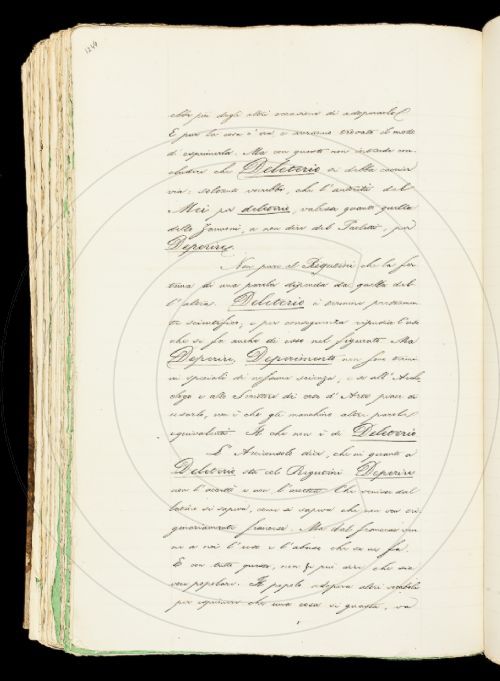 1249
ebbe più degli altri occasione di adoperarle
E pure la cosa c'era, e avranno trovato il modo
di esprimerla. Ma con questo non intende con
cludere che Deleterio si debba cacciar
via: soltanto vorrebbe, che l'autorità del
Mei per deleterio, valesse quanto quella
dello Zannoni, a non dire del Paoletti, per
Deperire.
Non pare al Rigutini che la for
tuna di una parola dipenda da quella del
l'altra. Deleterio è termine puramen
te scientifico, e per conseguenza ripudia l'uso
che si fa anche di esso nel figurato. Ma
Deperire, Deperimento non sono termi
ni speciali di nessuna scienza, e se all'Archeo
logo e allo Scrittore di cose d'Arte piace di
usarlo, non è che gli manchino altre parole
equivalenti. Il che non è di Deleterio
L'Arciconsolo dice, che in quanto a
Deleterio sta col Rigutini. Deperire
non l'accetta e non l'accettò. Che venisse dal
latino si sapeva, come si sapeva che non era ori
ginariamente francese. Ma dal francese ven
ne a noi l'uso e l'abuso che se ne fa.
E con tutto questo, non si può dire che sia
voce popolare. Il popolo adopera altri vocaboli
per esprimere che una cosa si guasta, va